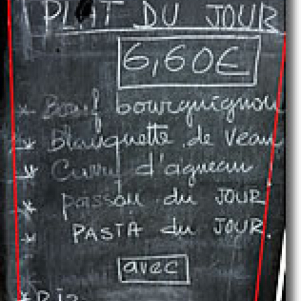 PLAT DU JOUR
6,60€
* Bœuf bourguignon
* Blanquette de veau
* Curry d'agneau
* poisson du JOUR
* PASTA du JOUR.
avec
* Riz